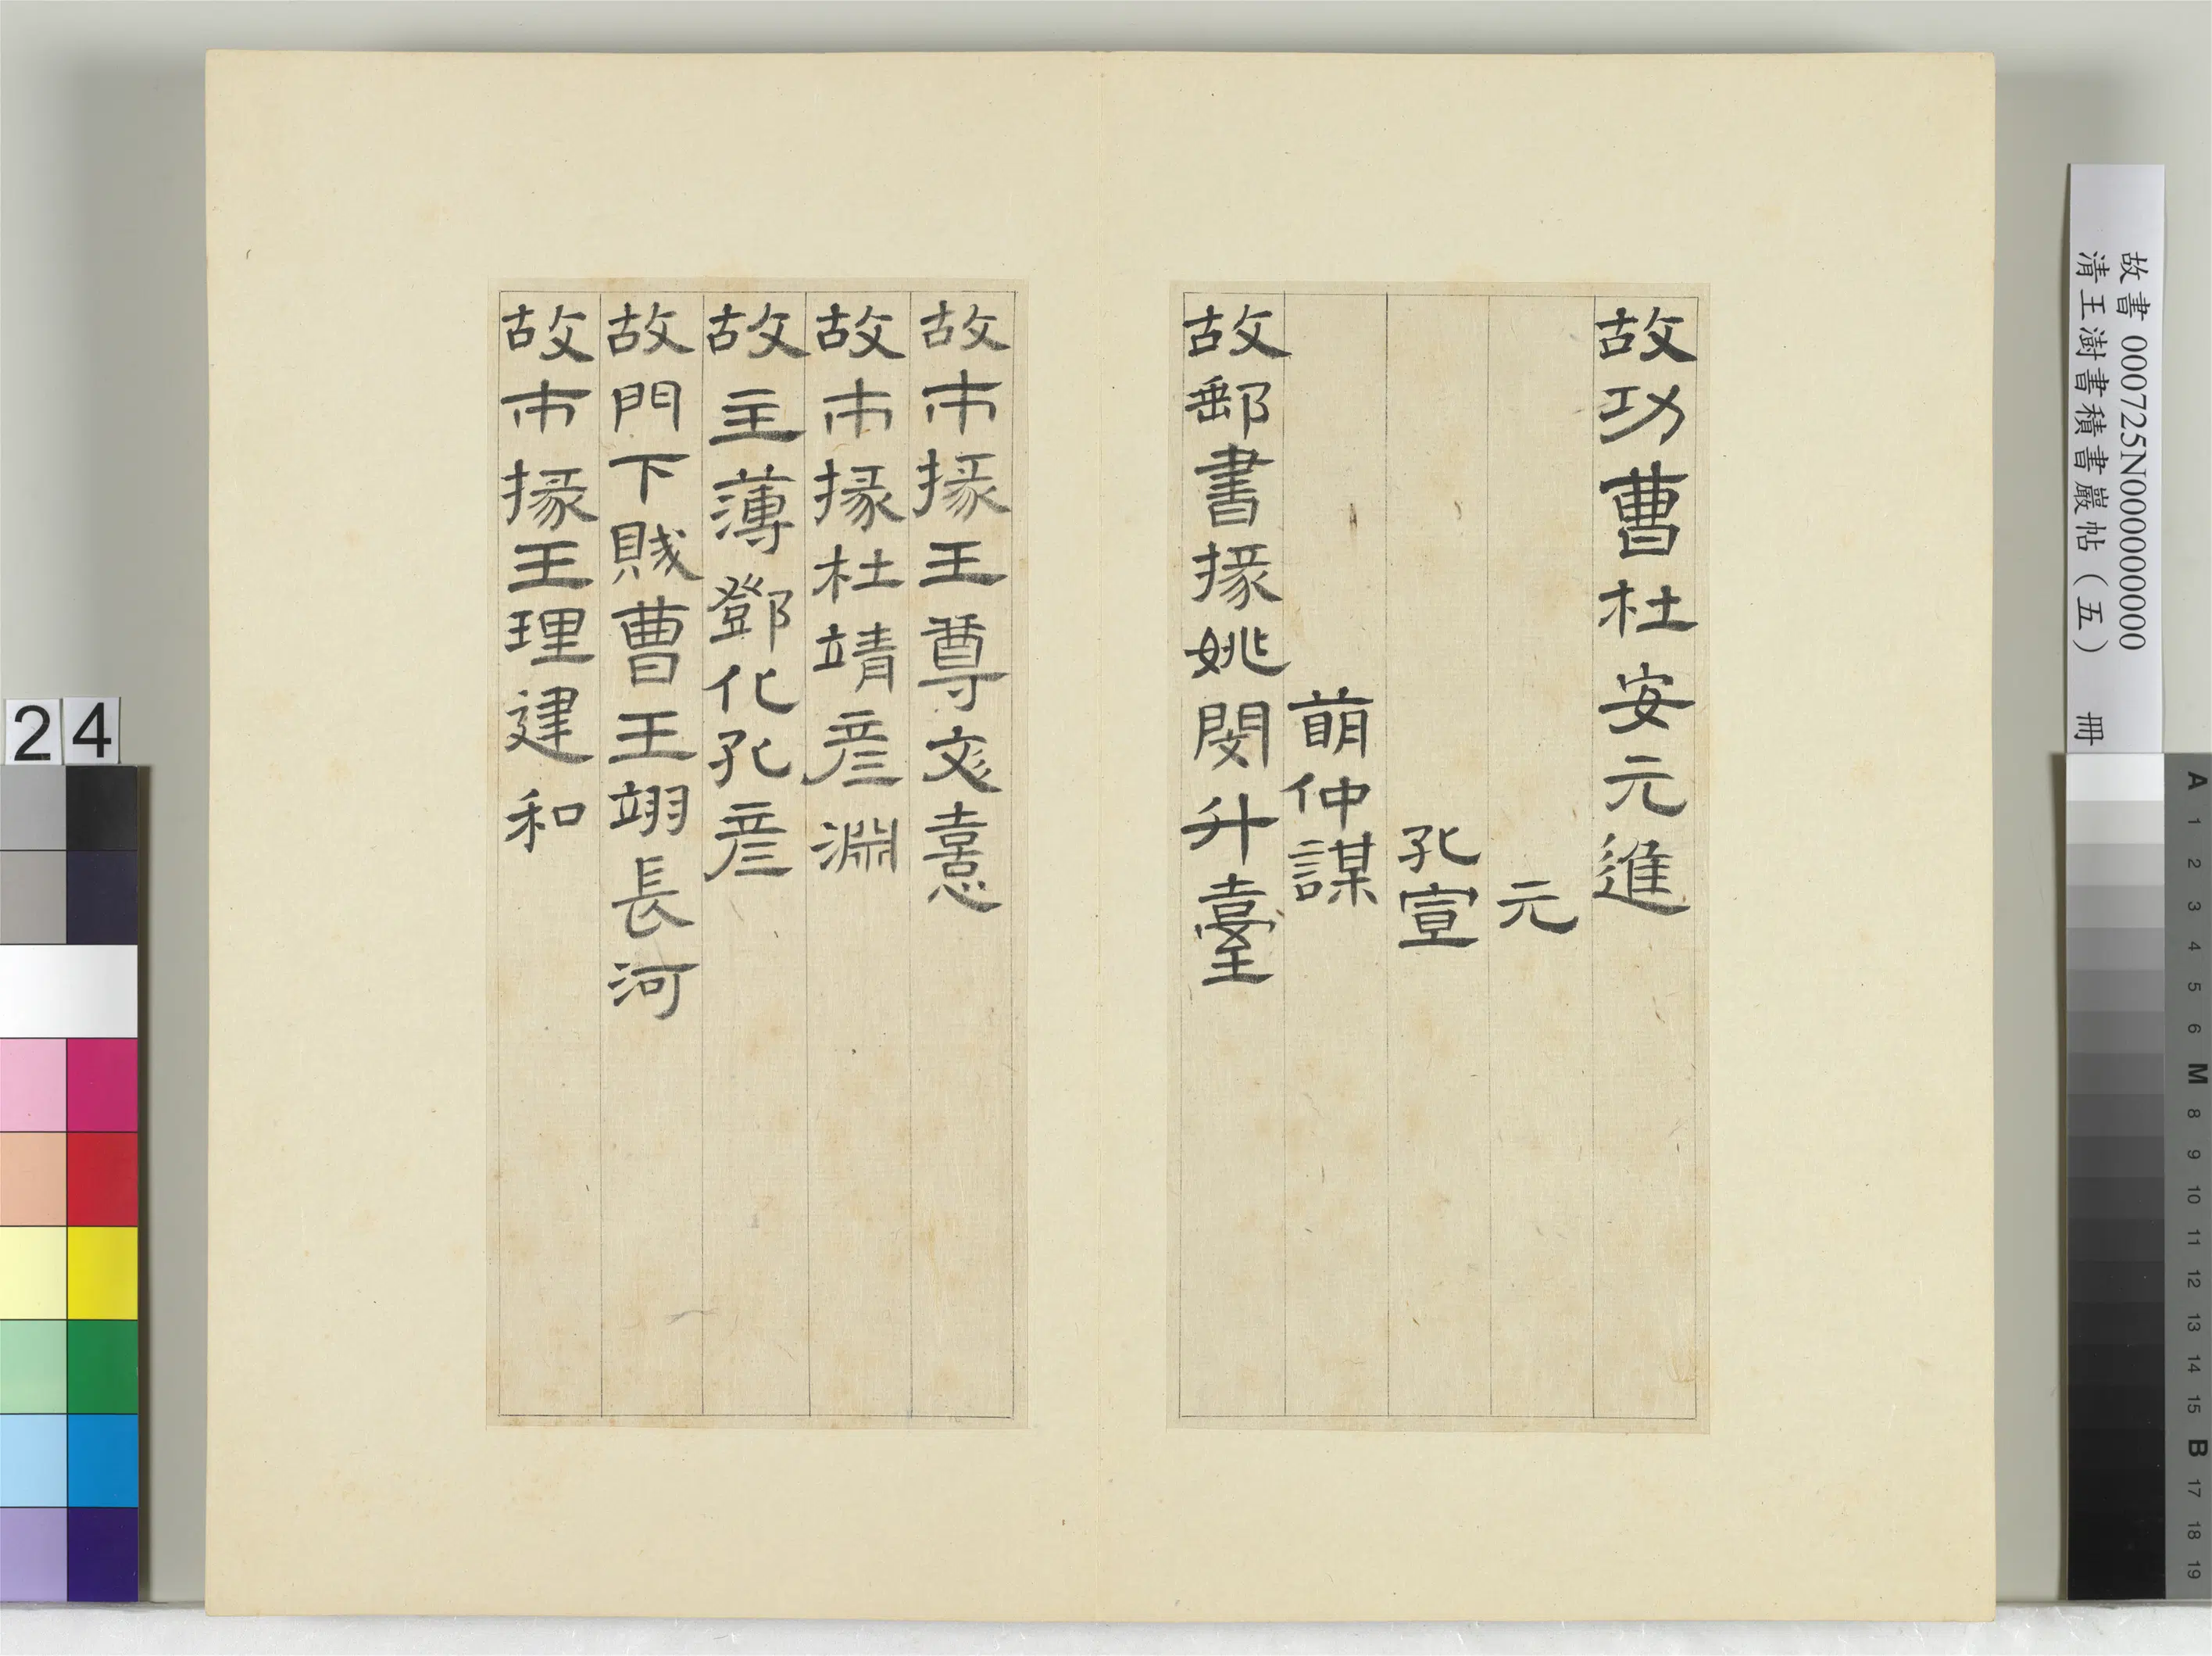 故功曹杜安元進
元
孔宣
萌仲謀
故郵書掾姚閔升臺
故市掾王尊文憙
故市掾杜靖彥淵
故主薄鄧化孔彥
故門下賊曹王翊長河
故市掾王理建和
故書 000725N000000000
清王澍書積書巖帖（五） 冊
24
A
1
2
3
4
5
6
M
8
9
10
11
12
13
14
15
B
17
18
19